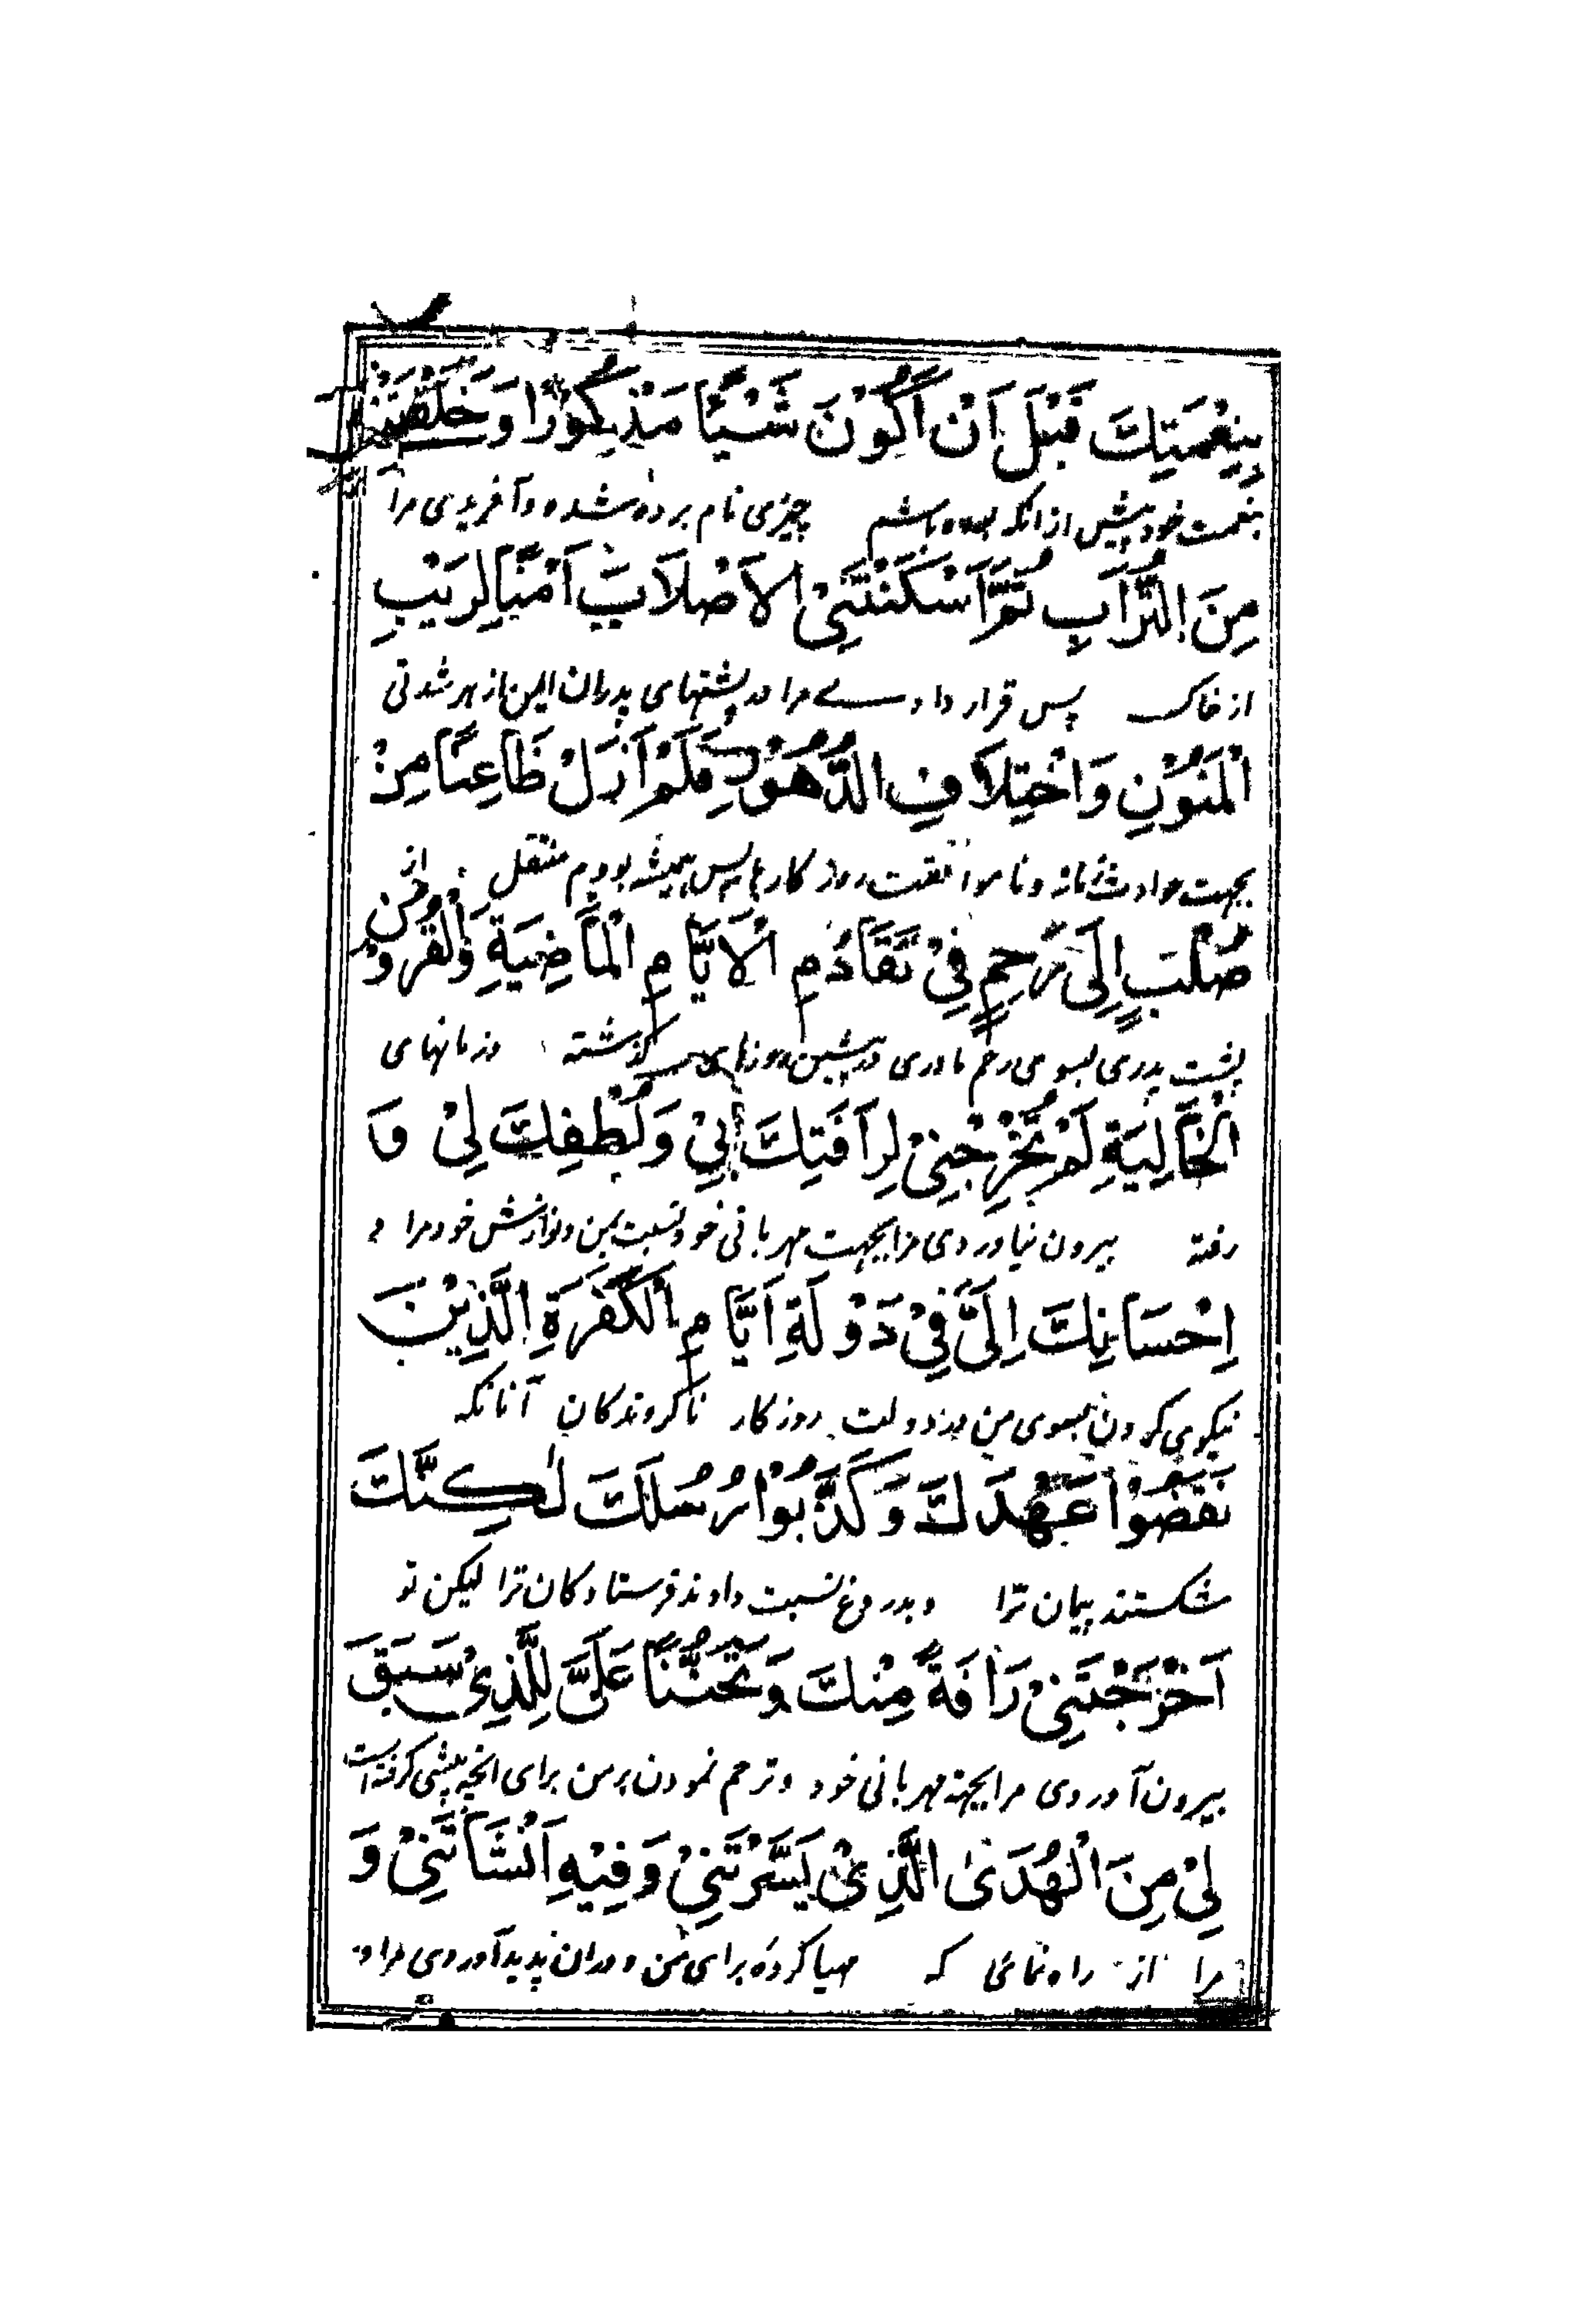 بِنِعْمَتِكَ قَبْلَ اَنْ اَكُوْنَ شَيْئًا مَذْكُوْرًا وَخَلَقْتَنِيْ
بنعمت خود پیش از انکه بوده باشم چیزی نام برده شده و آفریدی مرا
مِنَ التُّرَابِ ثُمَّ اَسْكَنْتَنِيْ الاَصْلَابَ اٰمِنًا لِرَيْبِ
از خاک پس قرار دادے مرا در پشتهای پدران ایمن از هر شدتی
الْمَنُوْنِ وَاخْتِلَافِ الدُّهُوْرِ فَلَمْ اَزَلْ ظَاعِنًا مِنْ
بجهت حوادث زمانه و ناموافقت روزکارها پس همیشه بودم منتقل از
صُلْبٍ اِلَى رَحِمٍ فِيْ تَقَادُمِ الْاَيَّامِ الْمَاضِيَةِ وَالْقُرُوْنِ
پشت پدری بسوی رحم مادری در پیشین روزهای کذشته و زمانهای
الْخَالِيَةِ لَمْ تُخْرِجْنِيْ لِرَأفَتِكَ بِيْ وَلُطْفِكَ لِيْ وَ
رفته بیرون نیاوردی مرا بجهت مهربانی خود نسبت بمن و نوازش خود مرا و
اِحْسَانِكَ اِلَيَّ فِيْ دَوْلَةِ اَيَّامِ الْكَفَرَةِ الَّذِيْنَ
نیکوی کردن بسوی من در دولت روزکار ناکروندکان آنانکه
نَقَضُوْا عَهْدَكَ وَكَذَّبُوْا رُسُلَكَ لٰكِنَّكَ
شکستند پیمان ترا و بدروغ نسبت دادند فرستادکان ترا لیکن تو
اَخْرَجْتَنِيْ رَأفَةً مِنْكَ وَتَحَنُّنًا عَلَيَّ لِلَّذِيْ سَبَقَ
بیرون آوردی مرا بجهة مهربانی خود و ترحم نمودن بر من برای انچه پیشی کرفته است
لِيْ مِنَ الْهُدَىٰ الَّذِيْ يَسَّرْتَنِيْ وَفِيْهِ اَنْشَأتَنِيْ وَ
مرا از راه نمائی که مهیا کرده برای من و دران پدید آوردی مرا و